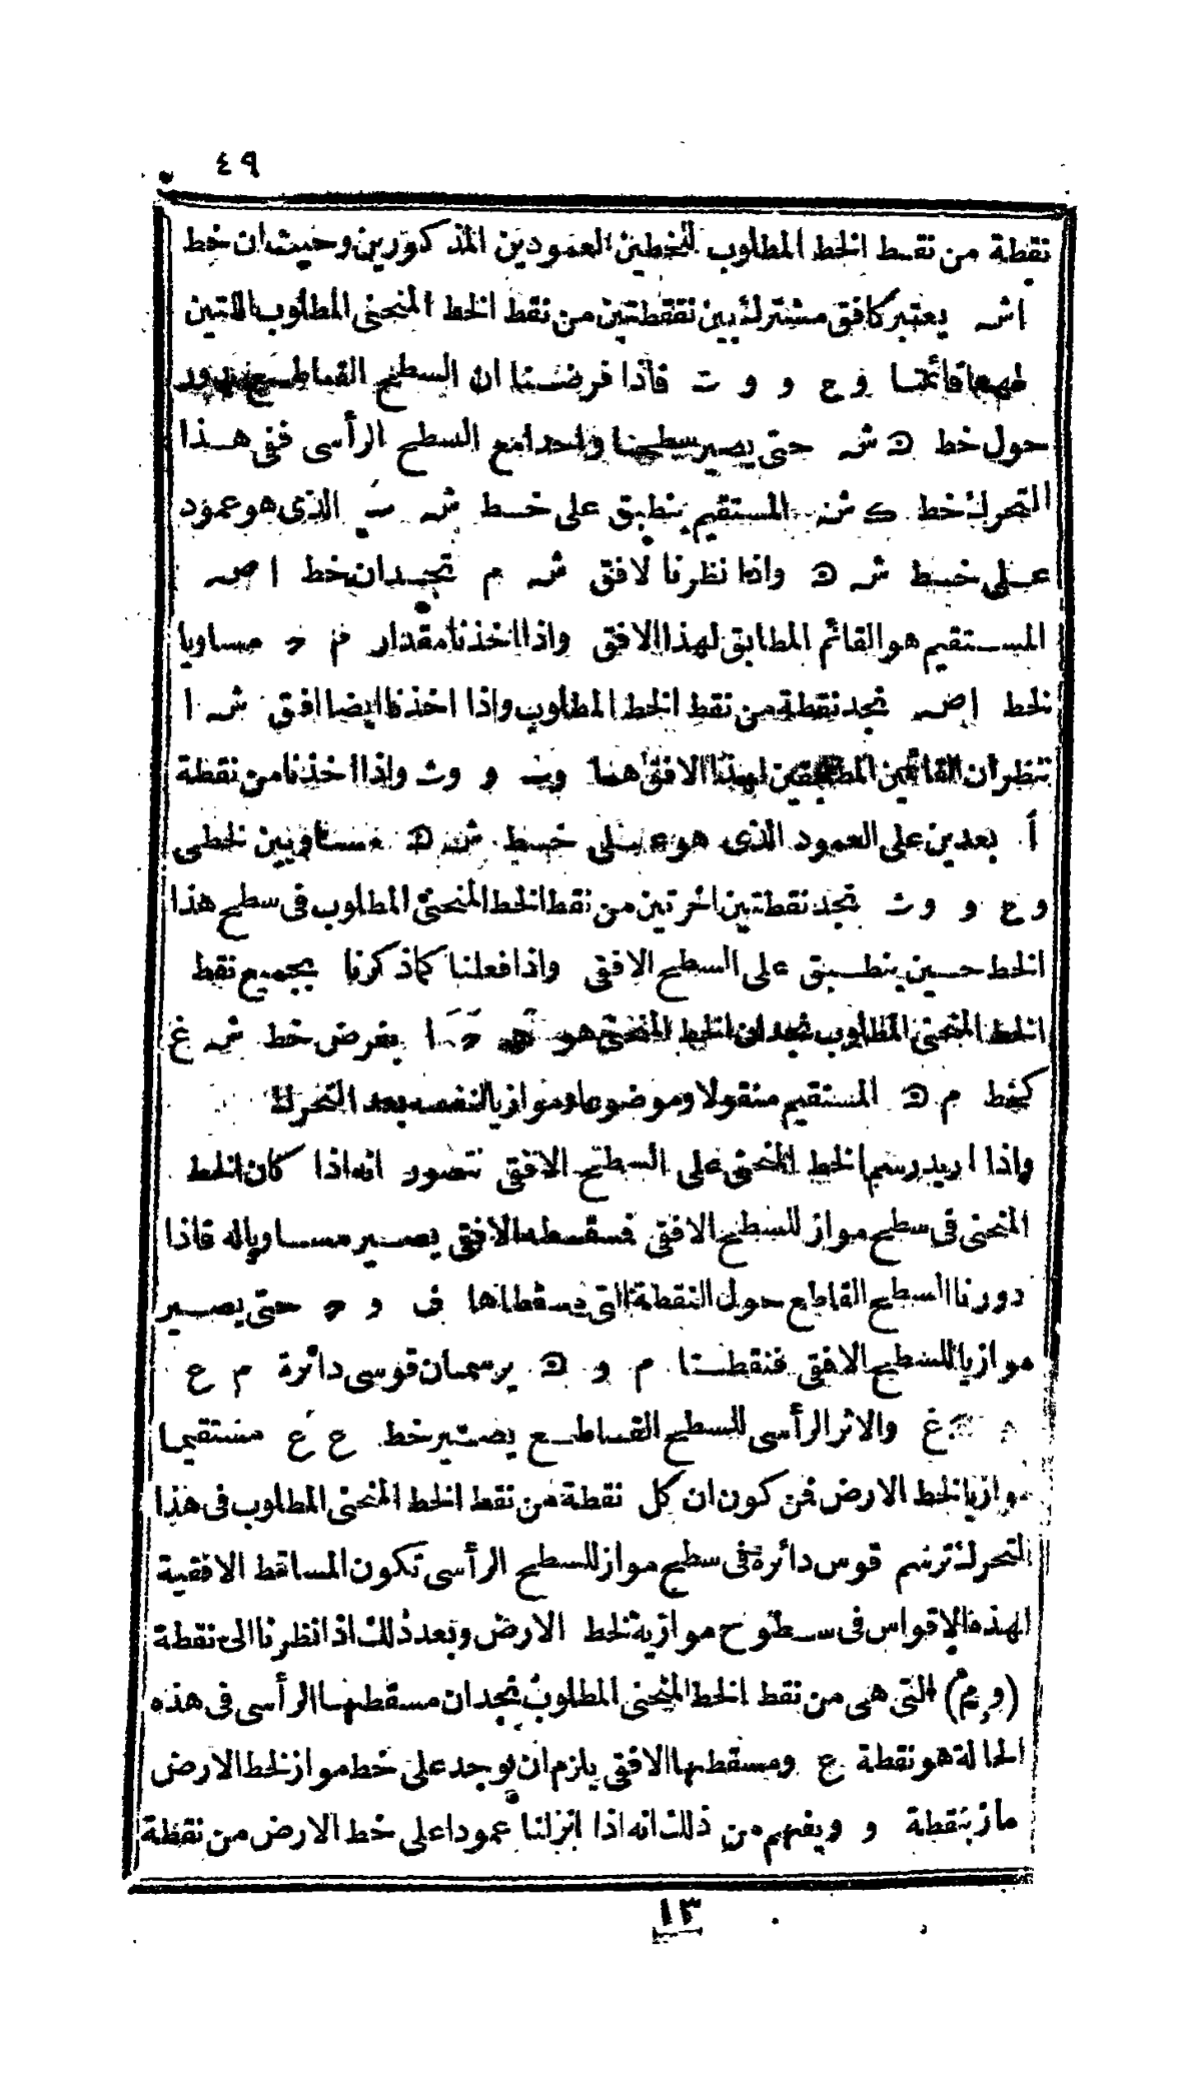 ٤٩
نقطة من نقط الخط المطلوب للخطين العمودين المذكورين وحيث ان خط
اشہ يعتبر كافق مشترك بين نقطتين من نقط الخط المنحنى المطلوب اللتين
لهما قائمتا وع و وت فاذا فرضنا ان السطح القاطع يدور
حول خط ه شہ حتى يصير سطحا واحدا مع السطح الرأسى ففى هذا
التحرك خط ك شہ المستقيم ينطبق على خط شہ الذى هو عمود
على خط شہ ه واذا نظرنا لافق شہ م تجد ان خط اصہ
المستقيم هو القائم المطابق لهذا الافق واذا اخذنا مقدار مَ حَ مساويا
لخط اصہ نجد نقطة من نقط الخط المطلوب واذا اخذنا ايضا افق شہ ا
تنظر ان القائمين المطابقين لهذا الافق هما وت و وث واذا اخذنا من نقطة
أ بعدين على العمود الذى هو على خط شہ ه مساويين لخطى
وع و وث تجد نقطتين اخرتين من نقط الخط المنحنى المطلوب فى سطح هذا
الخط حسين ينطبق على السطح الافقى واذا فعلنا كما ذكرنا بجميع نقط
الخط المنحنى المطلوب نجد ان الخط المنحنى هو حَ أ بفرض خط شہ غ
كخط م ه المستقيم منقولا وموضوعا وموازيا لنفسه بعد التحرك
واذا اريد رسم الخط المنحنى على السطح الافقى نتصور انه اذا كان الخط
المنحنى فى سطح مواز للسطح الافقى فسقطه الافقى يصير مساويا له فاذا
دورنا السطح القاطع حول النقطة التى مسقطاها ف و ح حتى يصير
موازيا للسطح الافقى فنقطتا م و ه يرسمان قوسى دائرة م ع
غ والاثر الرأسى للسطح القاطع يصير خط ع عَ مستقيما
موازيا لخط الارض فمن كون ان كل نقطة من نقط الخط المنحنى المطلوب فى هذا
التحرك ترسم قوس دائرة فى سطح مواز للسطح الرأسى تكون المساقط الافقية
لهذه الاقواس فى سطوح موازية لخط الارض وبعد ذلك اذا نظرنا الى نقطة
(و مَ) التى هى من نقط الخط المنحنى المطلوب نجد ان مسقطها الرأسى فى هذه
الحالة هو نقطة ع ومسقطها الافقى يلزم ان يوجد على خط مواز لخط الارض
مار بنقطة و ويفهم من ذلك انه اذا انزلنا عمودا على خط الارض من نقطة
١٣